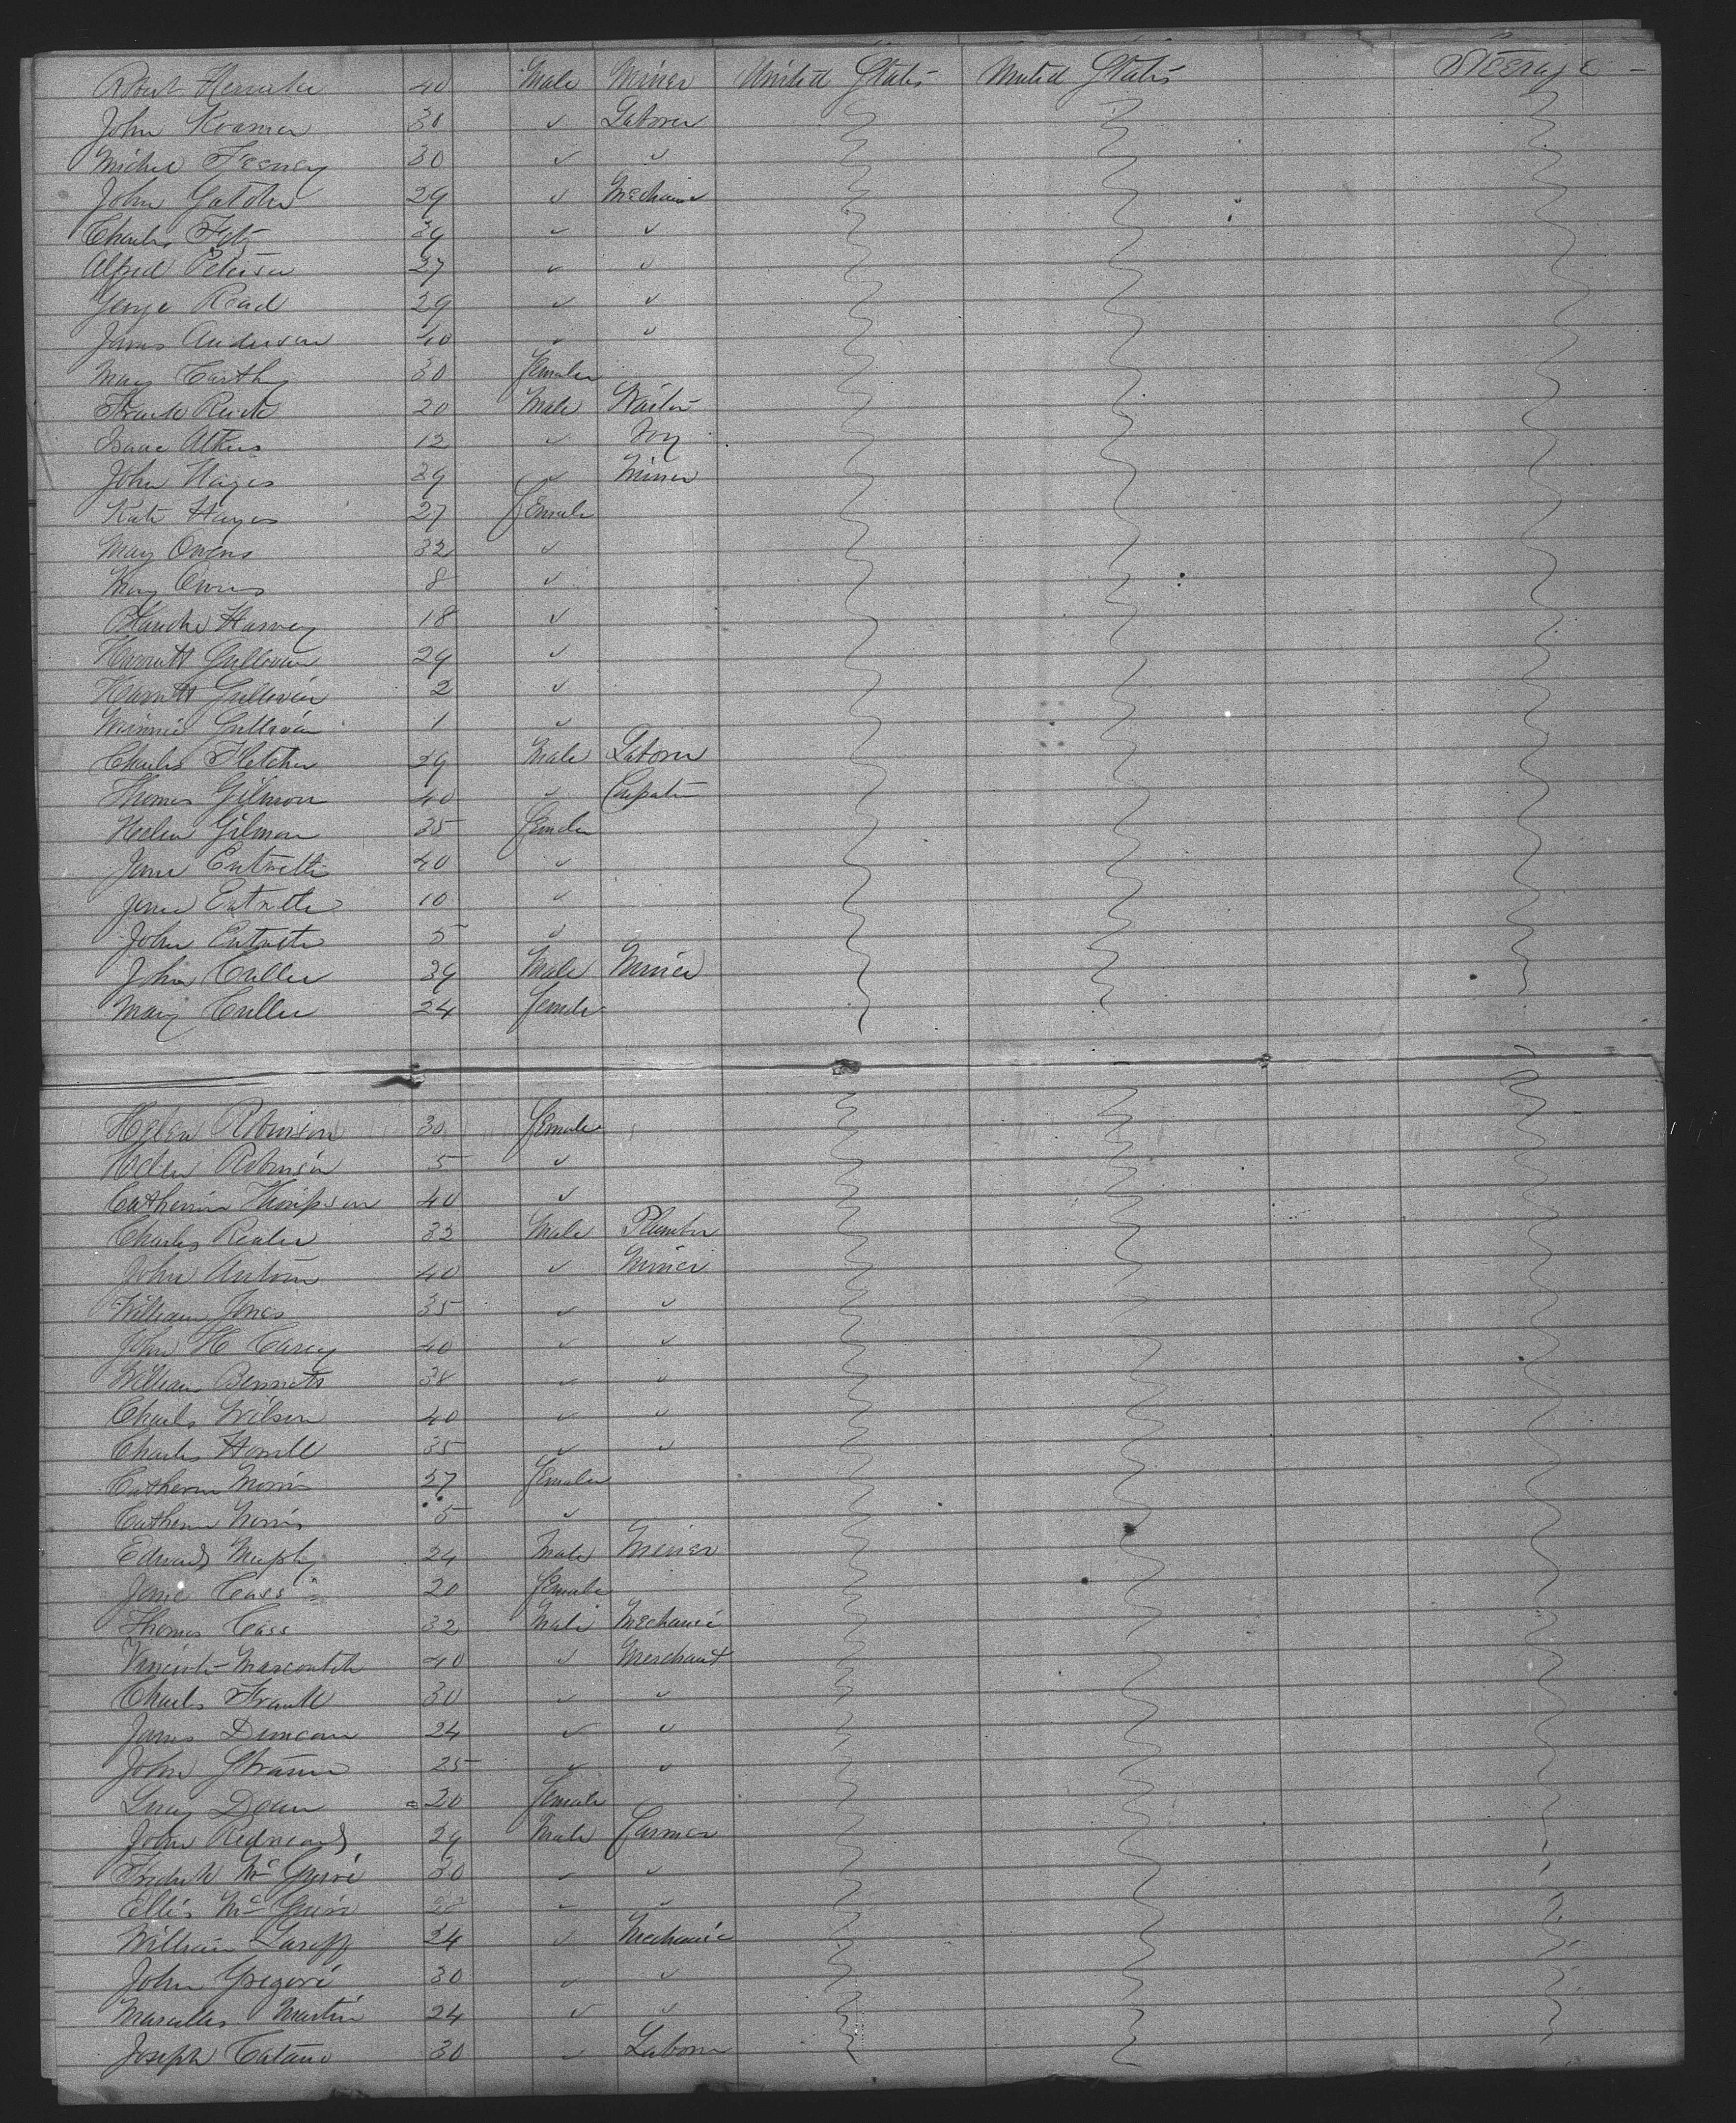 Robert 40 Male Miner United States United States Steerage
John 30 ✓ Laborer
Michel Feeney 30 ✓ ✓
John 29 ✓ Mechanic
Charles 39 ✓ ✓
Alfred Peterson 27 ✓ ✓
George Read 29 ✓ ✓
James Anderson 40 ✓ ✓
Mary Carthy 30 Female
Frank 20 Male Waiter
Isaac Atkins 12 ✓ Boy
John Hayes 39 ✓ Miner
Kate Hayes 27 Female
Mary Owens 32 ✓
Mary Owens 8 ✓
Blanche Harvey 18 ✓
Harriett Gullivan 29 ✓
Harriett Gullivan 2 ✓
Winnie Gullivan 1 ✓
Charles Fletcher 29 Male Laborer
Thomas Gilmon 40 ✓
Helen Gilmon 35 Female
Jane 40 ✓
Jane 10 ✓
John 5 ✓
John Culler 39 Male Miner
Mary Culler 24 Female
Helen Robinson 30 Female
Helen Robinson 5 ✓
Catherine 40 ✓
Charles 32 Male Plumber
John Anton 40 ✓ Miner
William Jones 35 ✓ ✓
John H Carey 40 ✓ ✓
William Bennett 38 ✓ ✓
Charles Wilson 40 ✓ ✓
Charles 35 ✓ ✓
Catherine Morris 27 Female
Catherine Morris 5 ✓
Edward Murphy 24 Male Miner
Jane Cass 20 Female
Thomas Cass 32 Male Mechanic
40 ✓ Merchant
Charles Frank 30 ✓ ✓
James Duncan 24 ✓ ✓
John 25 ✓ ✓
Lucy Dean 20 Female
John 29 Male Farmer
30 ✓ ✓
Ellis ✓ ✓
William 24 ✓ Mechanic
John Gregori 30 ✓ ✓
Martin 24 ✓ ✓
Joseph Catano 30 ✓ Laborer